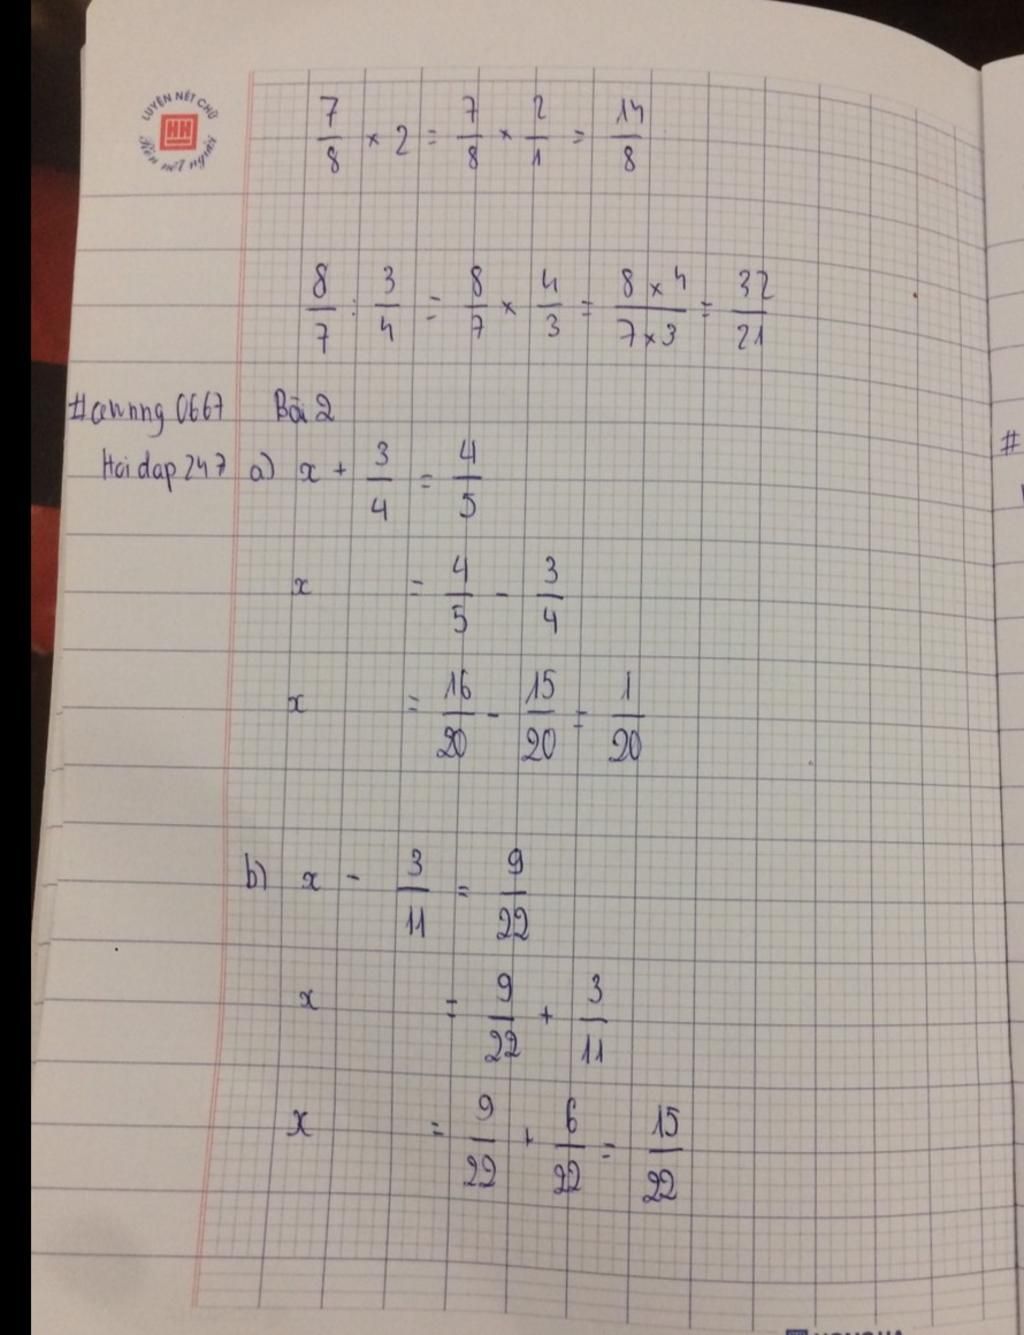 LUYỆN NÉT CHỮ
HH
Rèn nết người
7/8 × 2 = 7/8 × 2/1 = 14/8
8/7 : 3/4 = 8/7 × 4/3 = 8 × 4/7 × 3 = 32/21
Bài 2
Hoidap247 a) x + 3/4 = 4/5
x = 4/5 - 3/4
x = 16/20 - 15/20 = 1/20
b) x - 3/11 = 9/22
x = 9/22 + 3/11
x = 9/22 + 6/22 = 15/22
#